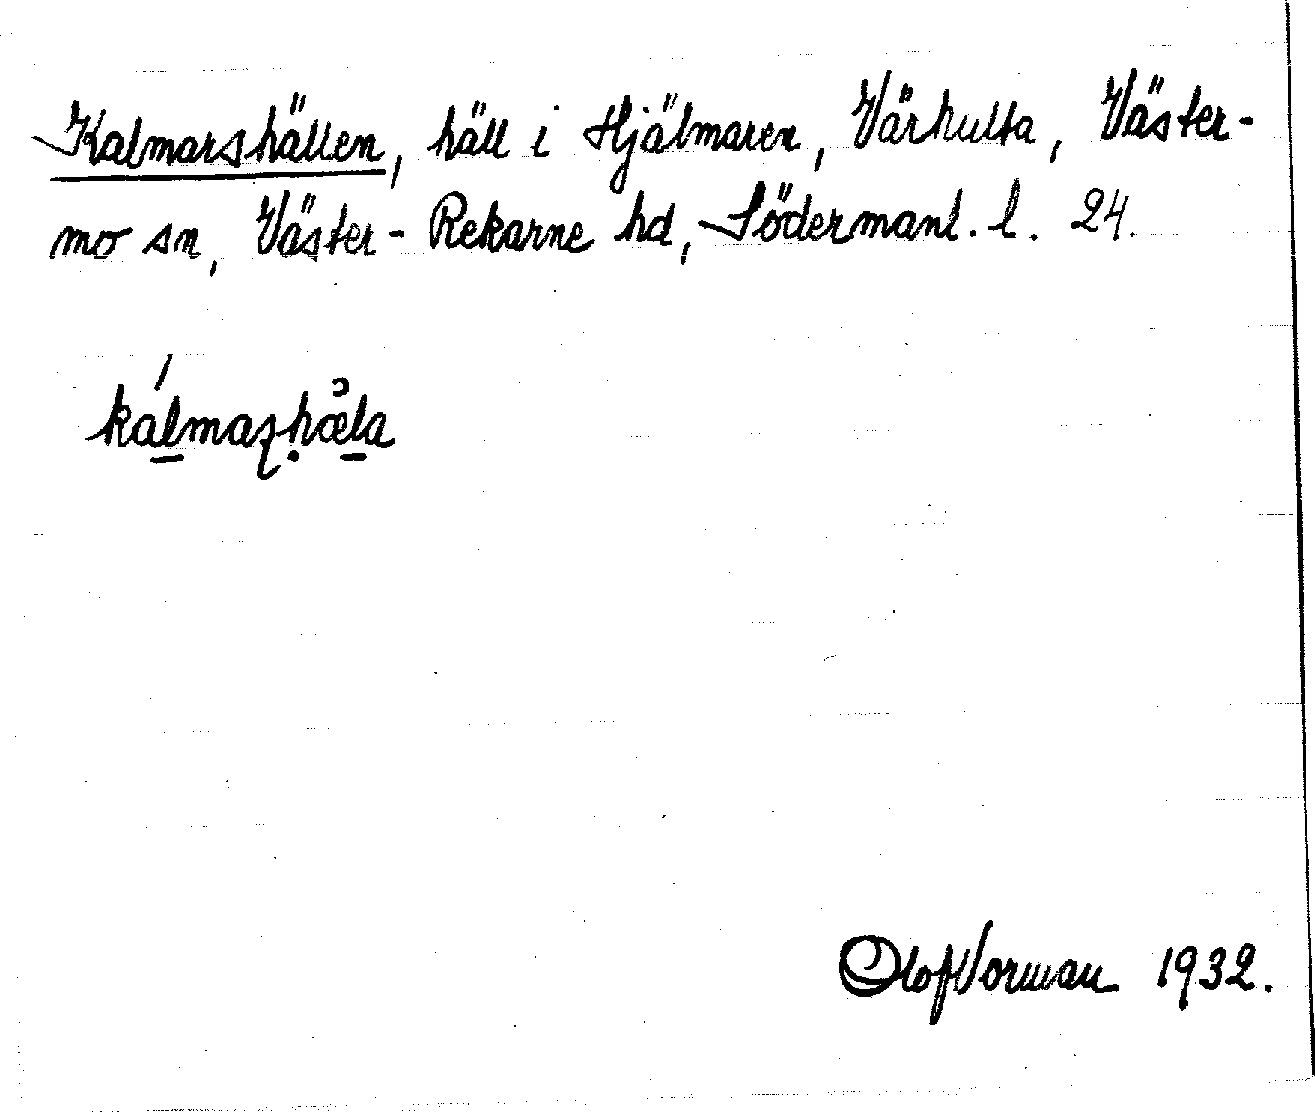 Kalmarshällen, häll i Hjälmaren, Värhulta, Väster-
mo sn, Väster-Rekarne hd, Södermanl. l. 24.
kalmaʂhæla
Olof Norman 1932.